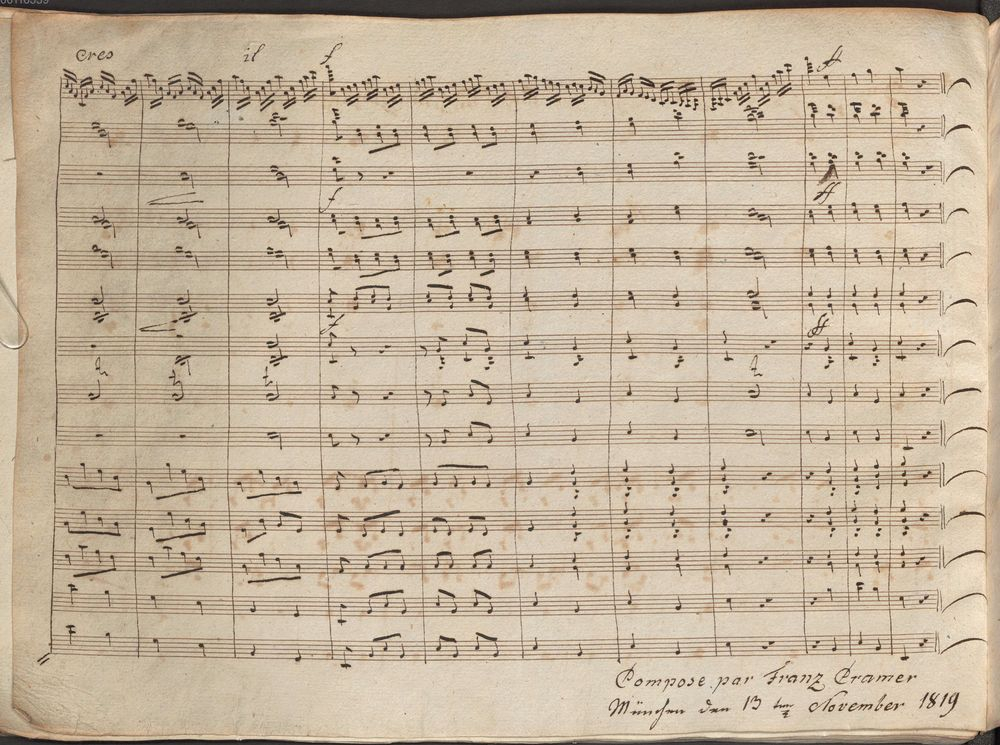 00110339
cres il f ff
f ff
f ff
Compose par Franz Cramer
München den 13 ten November 1819